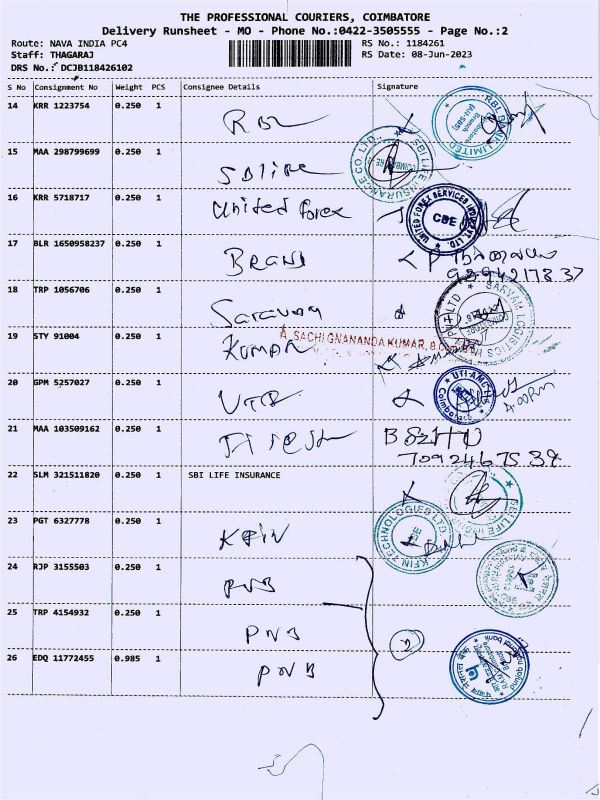 THE PROFESSIONAL COURIERS, COIMBATORE
Delivery Runsheet - MO - Phone No.:0422-3505555 - Page No.:2
Route: NAVA INDIA PC4 RS No.: 1184261
Staff: THAGARAJ RS Date: 08-Jun-2023
DRS No.: DCJB118426102
S No Consignment No Weight PCS Consignee Details Signature
14 KRR 1223754 0.250 1 RBL RBL BANK LIMITED
15 MAA 298799699 0.250 1 SBI life SBI LIFE INSURANCE CO. LTD.
16 KRR 5718717 0.250 1 United forex UNITED FOREX SERVICES CBE
17 BLR 1650958237 0.250 1
9894217837
18 TRP 1056706 0.250 1 Saravan SARVAM LOGISTICS
19 STY 91004 0.250 1 Kumar A. SACHIGNANANDA KUMAR, B.Com
20 GPM 5257027 0.250 1 UTI UTI AMC Coimbatore
21 MAA 103509162 0.250 1
7092467539
22 SLM 321511820 0.250 1 SBI LIFE INSURANCE SBI LIFE
23 PGT 6327778 0.250 1 KFIN KFIN TECHNOLOGIES LTD
24 RJP 3155503 0.250 1 PNB
25 TRP 4154932 0.250 1 PNB
26 EDQ 11772455 0.985 1 PNB punjab national bank